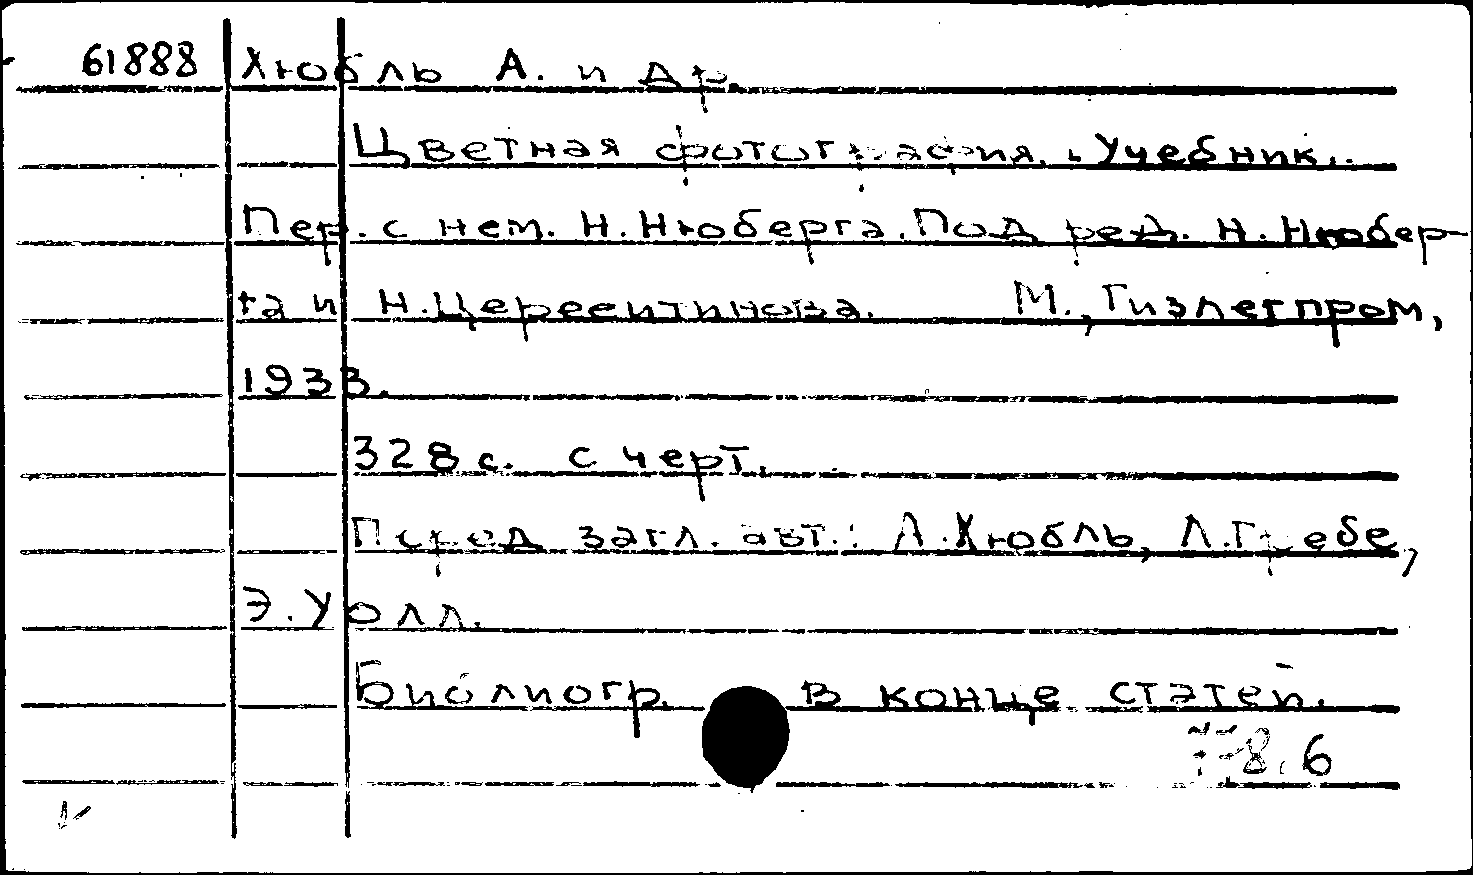 61888 Хюбль А. и др.
Цветная фотография. Учебник.
Пер. с нем. Н. Нюберга. Под ред. Н. Нюбер-
га и Н. Церевитинова. М., Гизлегпром,
1933.
328 с. с черт.
Перед загл. авт.: А. Хюбль, Л. Гребе,
Э. Уолл.
Библиогр. в конце статей.
778.6